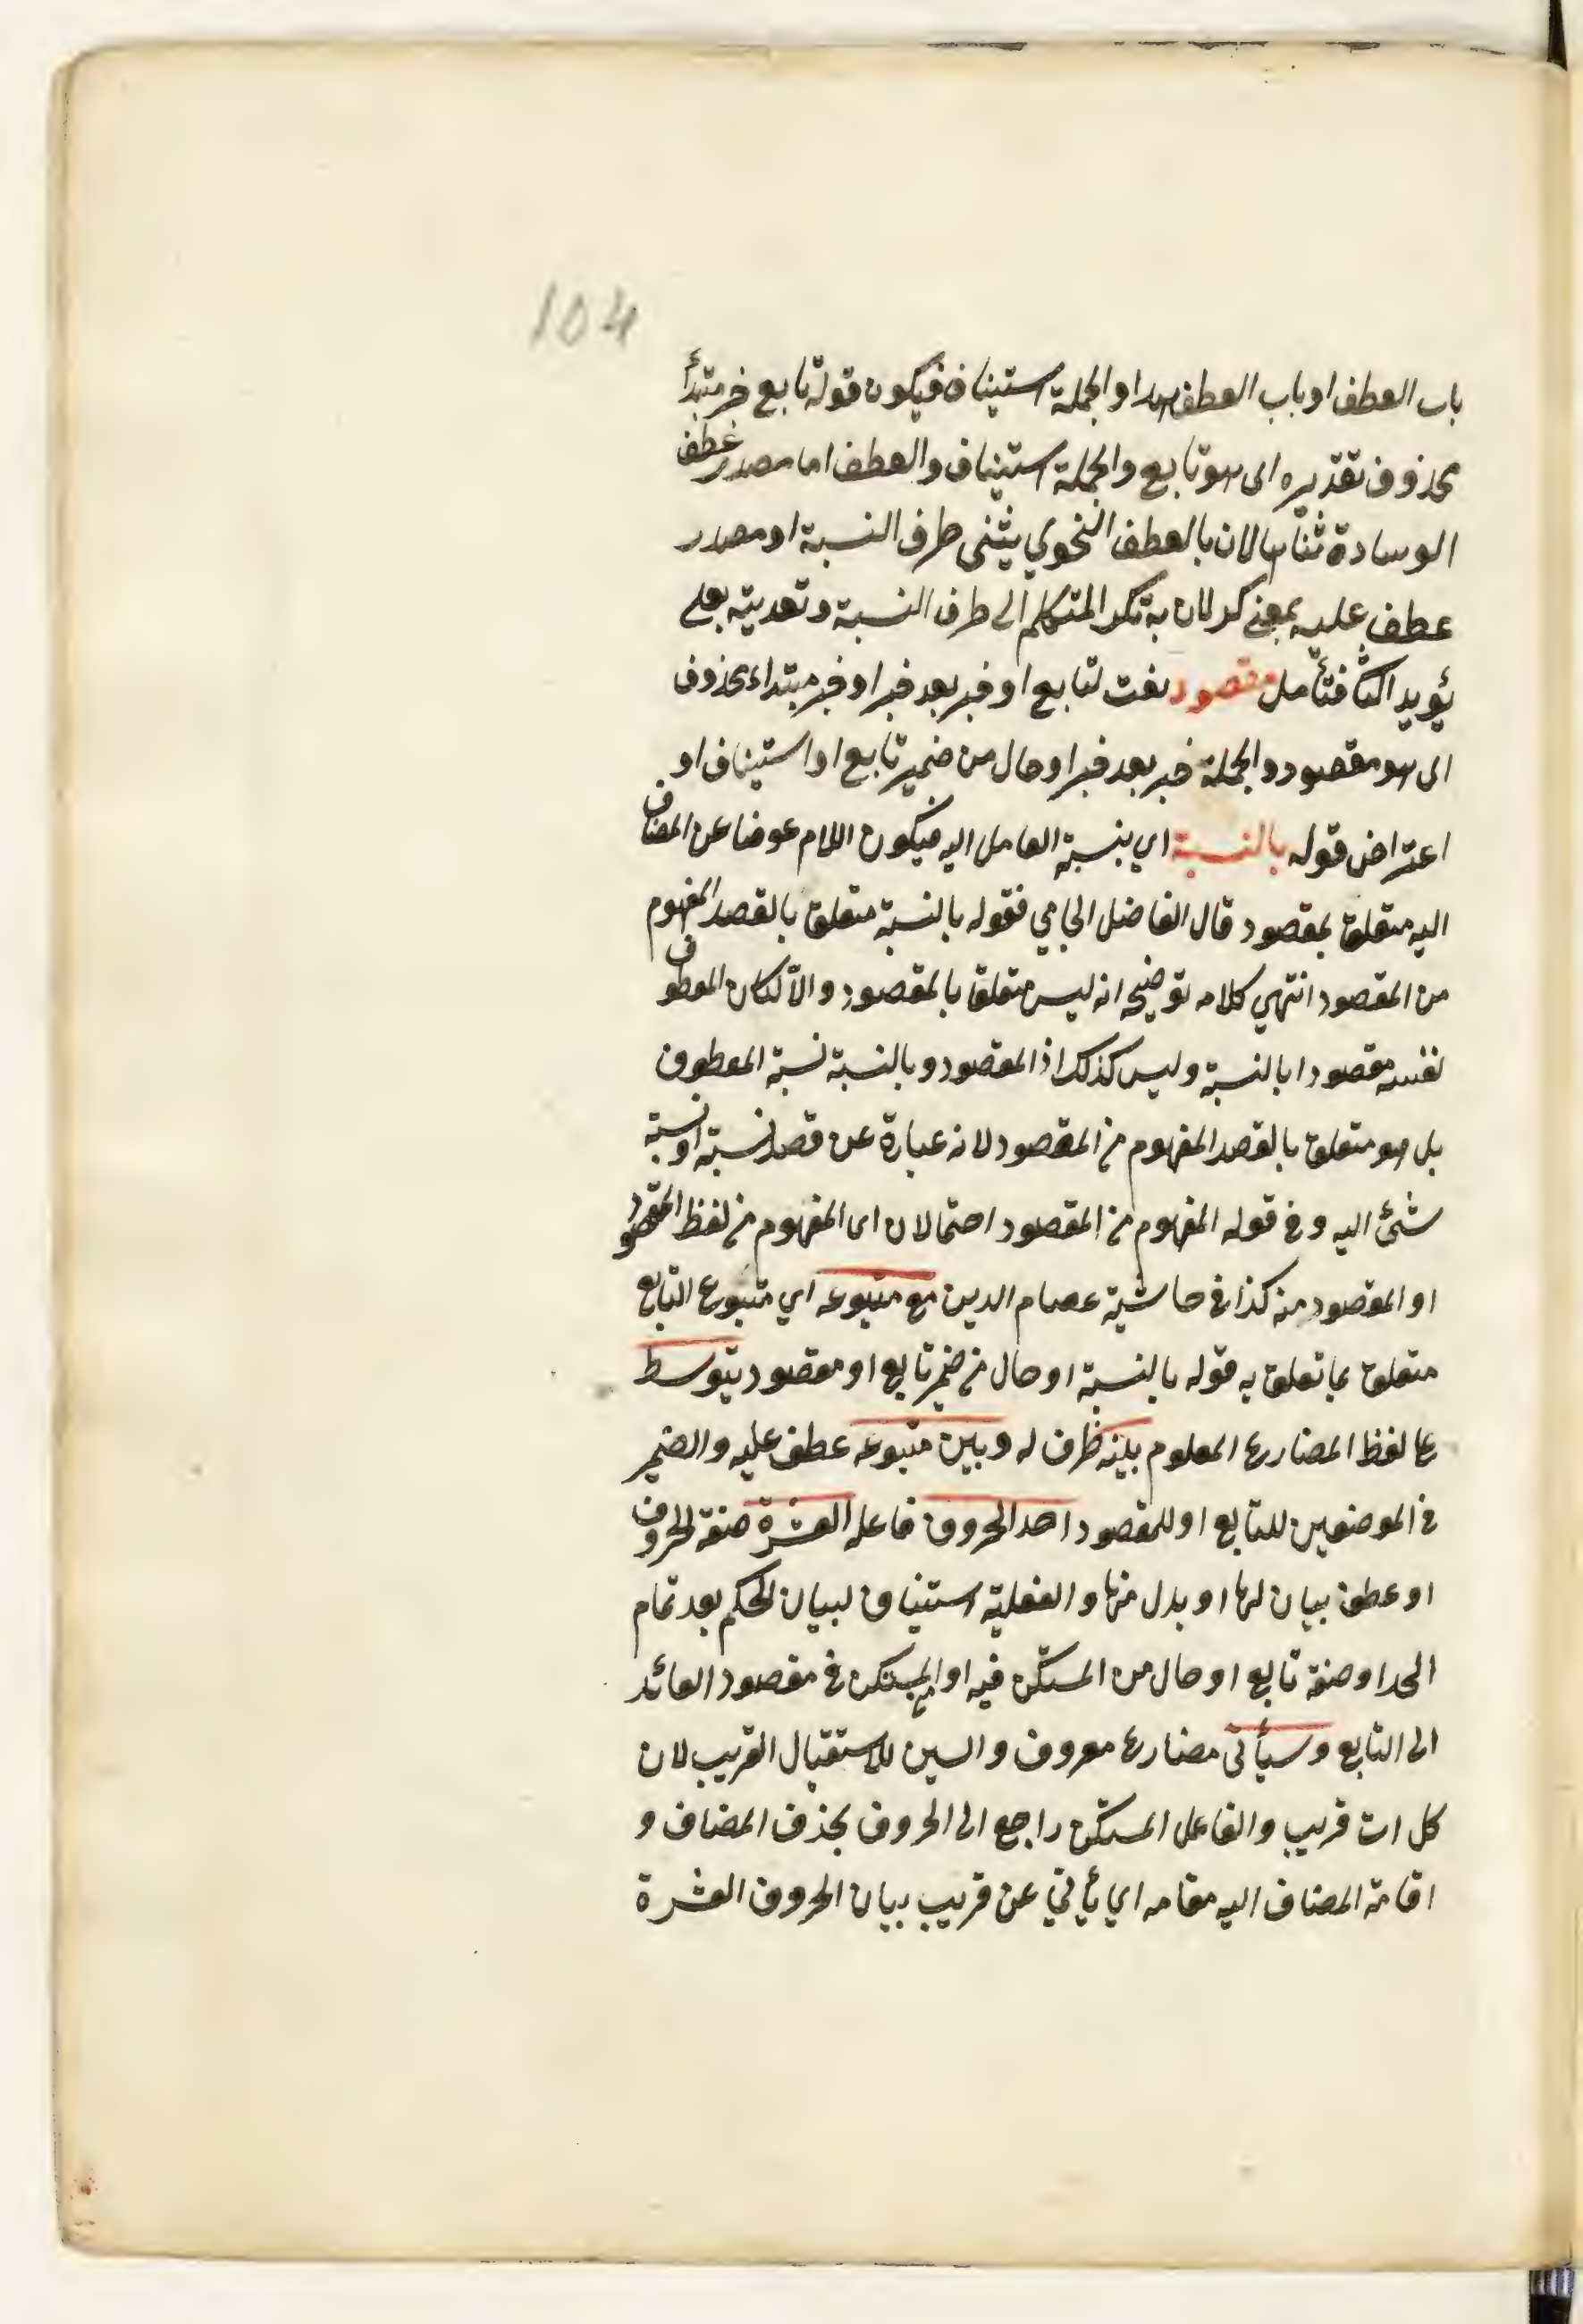 104
باب العطف او باب العطف هذا والجملة استيناف فيكون قوله تابع خبر مبتدأ
محذوف تقديره اى هو تابع والجملة استيناف والعطف اما مصدر عطف
الوسادة ثناها لان بالعطف النحوي يثنى طرف النسبة او مصدر
عطف عليه بمعنى كر لان به تكر المتكلم الى طرف النسبة وتعديته بعلى
يؤيد الثا فتأمل مقصود نعت لتابع او خبر بعد خبر او خبر مبتداء محذوف
اى هو مقصود والجملة خبر بعد خبر او حال من ضمير تابع او استيناف او
اعتراض قوله بالنسبة اي بنسبة العامل اليه فيكون اللام عوضا عن المضاف
اليه متعلق بمقصود قال الفاضل الجامي فقوله بالنسبة متعلق بالقصد المفهوم
من المقصود انتهي كلامه توضيحه انه ليس متعلقا بالمقصود والا لكان المعطوف
نفسه مقصودا بالنسبة وليس كذلك اذ المقصود بالنسبة نسبة المعطوف
بل هو متعلق بالقصد المفهوم من المقصود لانه عبارة عن قصد نسبته او نسبة
شئ اليه وفي قوله المفهوم من المقصود احتمالان اى المفهوم من لفظ المقصود
او المقصود منه كذا في حاشية عصام الدين مع متبوعه اي متبوع التابع
متعلق بما تعلق به قوله بالنسبة او حال من ضمير تابع او مقصود يتوسط
على لفظ المضارع المعلوم بينه ظرف له وبين متبوعه عطف عليه والضمير
في الموضعين للتابع او للمقصود احد الحروف فاعله العشرة صفة للحروف
او عطف بيان لها او بدل منها والفعلية استيناف لبيان الحكم بعد تمام
الحد او صفة تابع او حال من المستكن فيه او المستكن في مقصود العائد
الى التابع وسيأتى مضارع معروف والسين للاستقبال القريب لان
كل ات قريب والفاعل المستكن راجع الى الحروف بحذف المضاف و
اقامة المضاف اليه مقامه اي يأتي عن قريب بيان الحروف العشرة